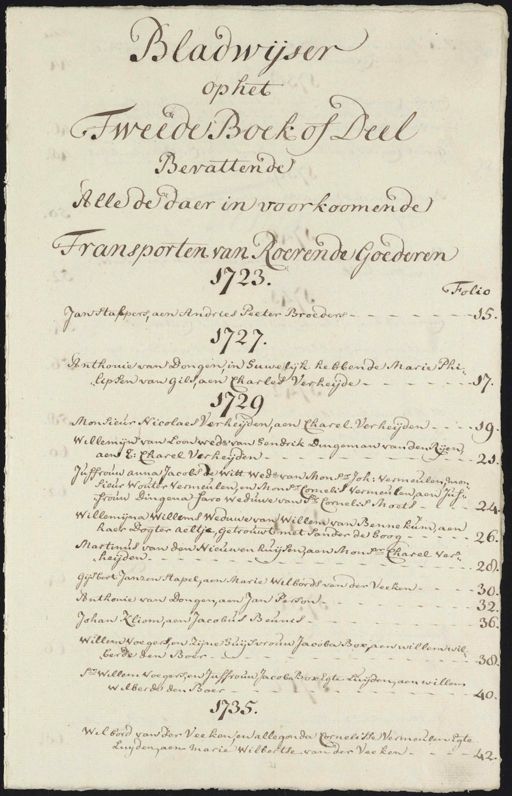 Bladwijser
op het
Tweede Boek of Deel
Bevattende
Alle de daer in voorkoomende
Transporten van Roerende Goederen
1723.
Folio
Jan Stappers, aen Andries Peeter Broeders 15.
1727.
Anthonie van Dongen, in Huwelijk hebbende Marie Phi-
lipsen van Gils, aen Charles Verheijde 17.
1729
Monsieur Nicolaes Verheijden, aen Charel Verheijden 19.
Willemijn van Loon wede van Hendrik Dingeman van den Rijen
aen E: Charel Verheijden 21.
Juffrouw anna Jacoba de Witt Wede van Monsr. Joh: Vermeulen, mon-
sieur Wouter Vermeulen, en Monsr. Cornelis Vermeulen, aen Juf-
frouw Dingena Havo Weduwe van Sr. Cornelis Moets 24.
Willemijna Willems Weduwe van Willem van Bennekum, aen
haer Dogter Aeltje, getrouwt met Sander de boog 26.
Martinus van den Nieuwenhuijsen, aen Monsr. Charel Ver-
heijden 28.
Gijsbert Janzen Stapel, aen Marie Wilbords van der Veeken 30.
Anthonie van Dongen, aen Jan Person 32.
Johan Kliom, aen Jacobus Beunes 36.
Willem Voegers, en Zijne Huijsvrouw Jacoba Box, aen Willem Wil-
berde den Boer 38.
Sr. Willem Voegers, en Juffrouw Jacoba Box Egte Luijden, aen Willem
Wilberde den Boer 40.
1735.
Wilbord van der Veeken, en allegonda Cornelisse Vermeulen Egte
Luijden, aen Marie Wilbertse van der Veeken 42.